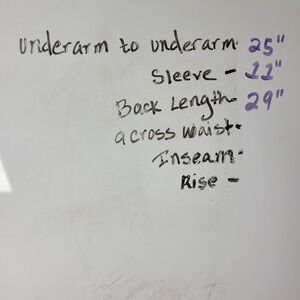 underarm to underarm- 25"
Sleeve - 11"
Back Length- 29"
across waist-
Inseam-
Rise -